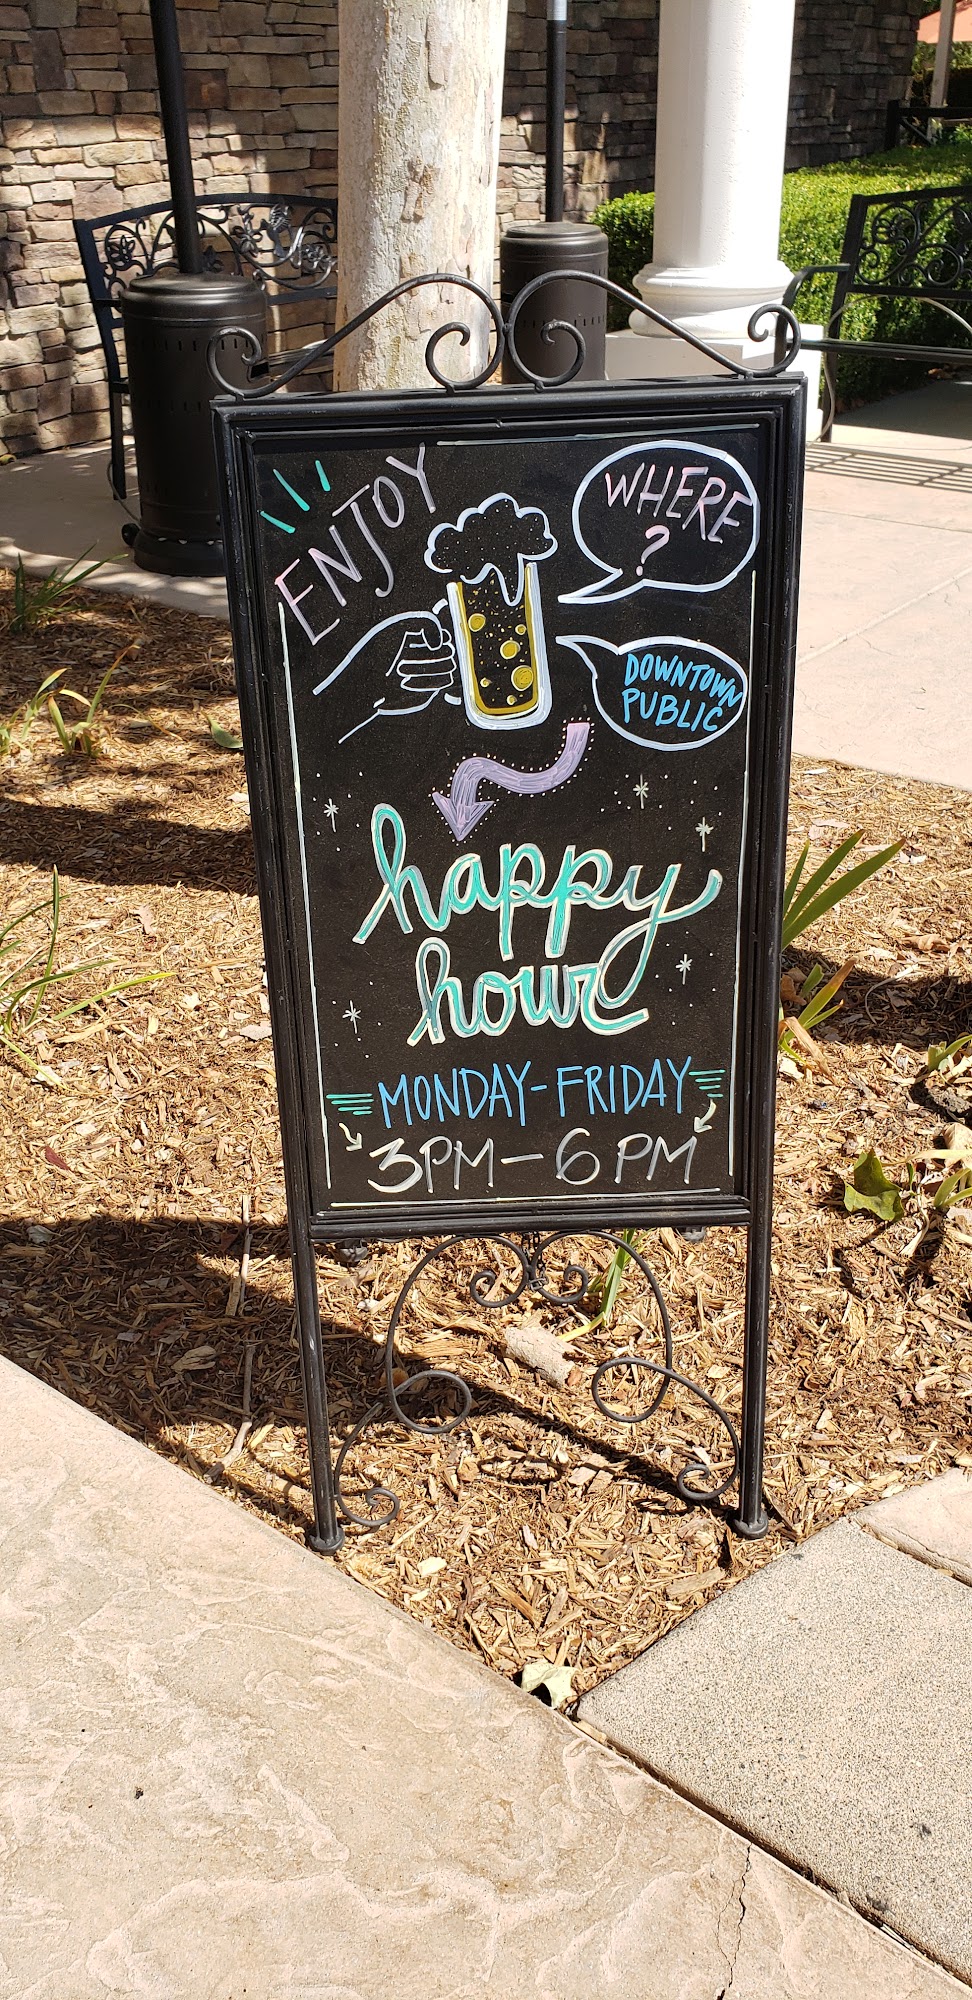 ENJOY
WHERE
?
DOWNTOWN
PUBLIC
happy
hour
MONDAY-FRIDAY
3PM-6PM